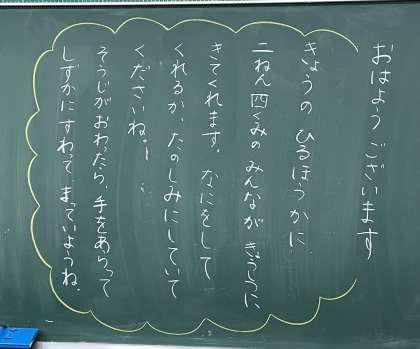 おはようございます
きょうの ひるほうかに
二ねん四くみの みんなが きょうしつに
きてくれます。 なにをして
くれるか、たのしみにしていて
くださいね。
そうじがおわったら、手をあらって
しずかにすわって まっていようね。